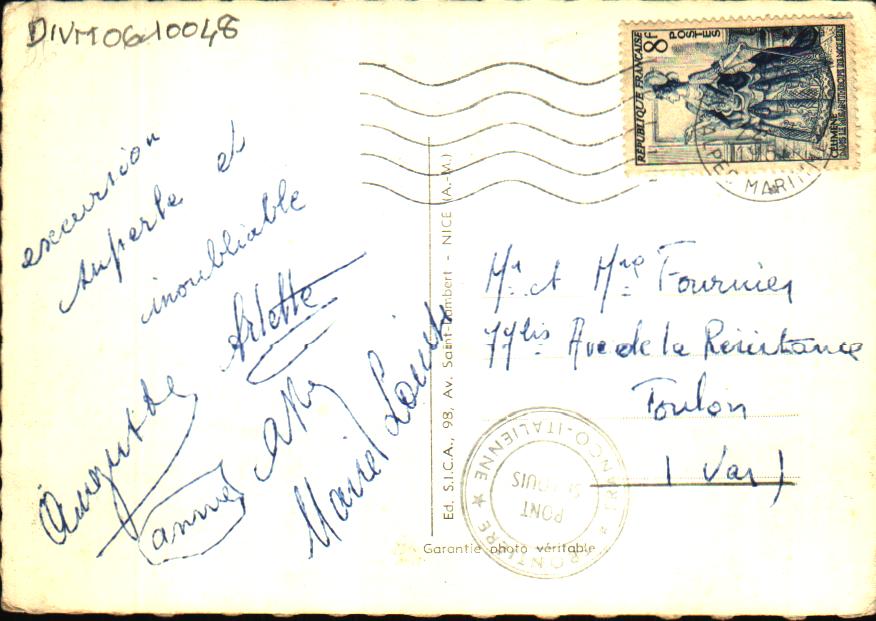 DIVM0610048
excursion
superbe et
inoubliable
Arlette
Auguste
annie
Marie Louise
Ed. S.I.C.A., 98, Av. Saint-Lambert - NICE (A.-M.)
RÉPUBLIQUE FRANÇAISE
8F
POSTES
CELIMENE
ALPES MARITIMES
Mr et Mme Fournier
77bis Ave de la Résistance
Toulon
(Var)
FRONTIERE FRANCO-ITALIENNE
PONT
St LOUIS
Garantie photo véritable